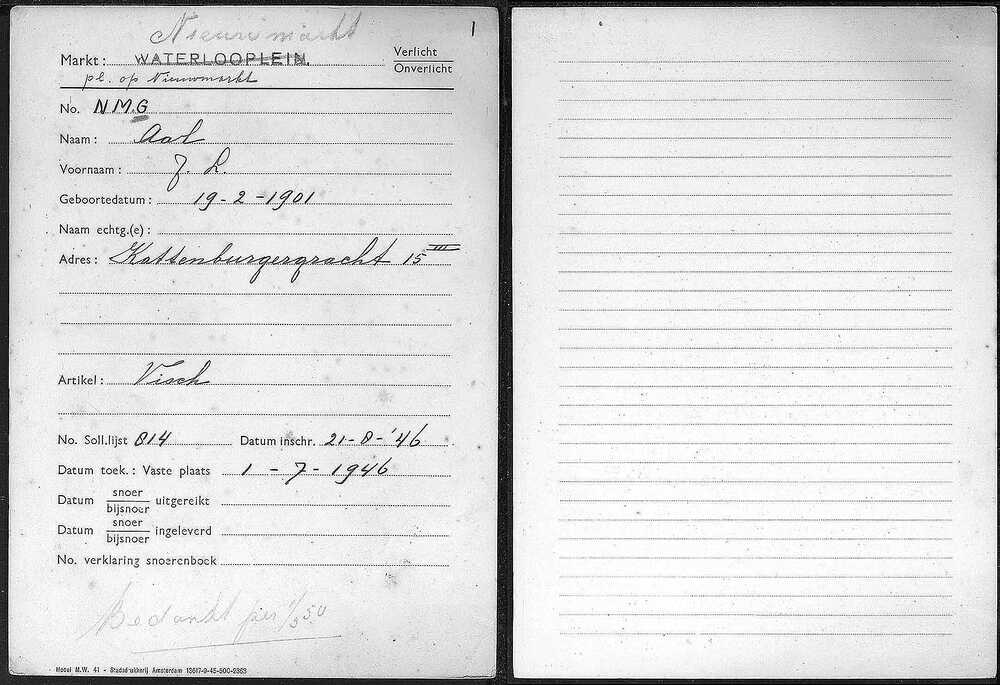 Nieuwmarkt
1
Markt: WATERLOOPLEIN. Verlicht
Onverlicht
pl. op Nieuwmarkt
No. NMG
Naam: Aal
Voornaam: J. L.
Geboortedatum: 19-2-1901
Naam echtg.(e):
Adres: Kattenburgergracht 15 III
Artikel: Visch
No. Soll.lijst 814 Datum inschr. 21-8-'46
Datum toek.: Vaste plaats 1-7-1946
Datum snoer
bijsnoer uitgereikt
Datum snoer
bijsnoer ingeleverd
No. verklaring snoerenboek
Bedankt per 1/5 50
Model M.W. 41 - Stadsdrukkerij Amsterdam 13617-9-45-500-2363